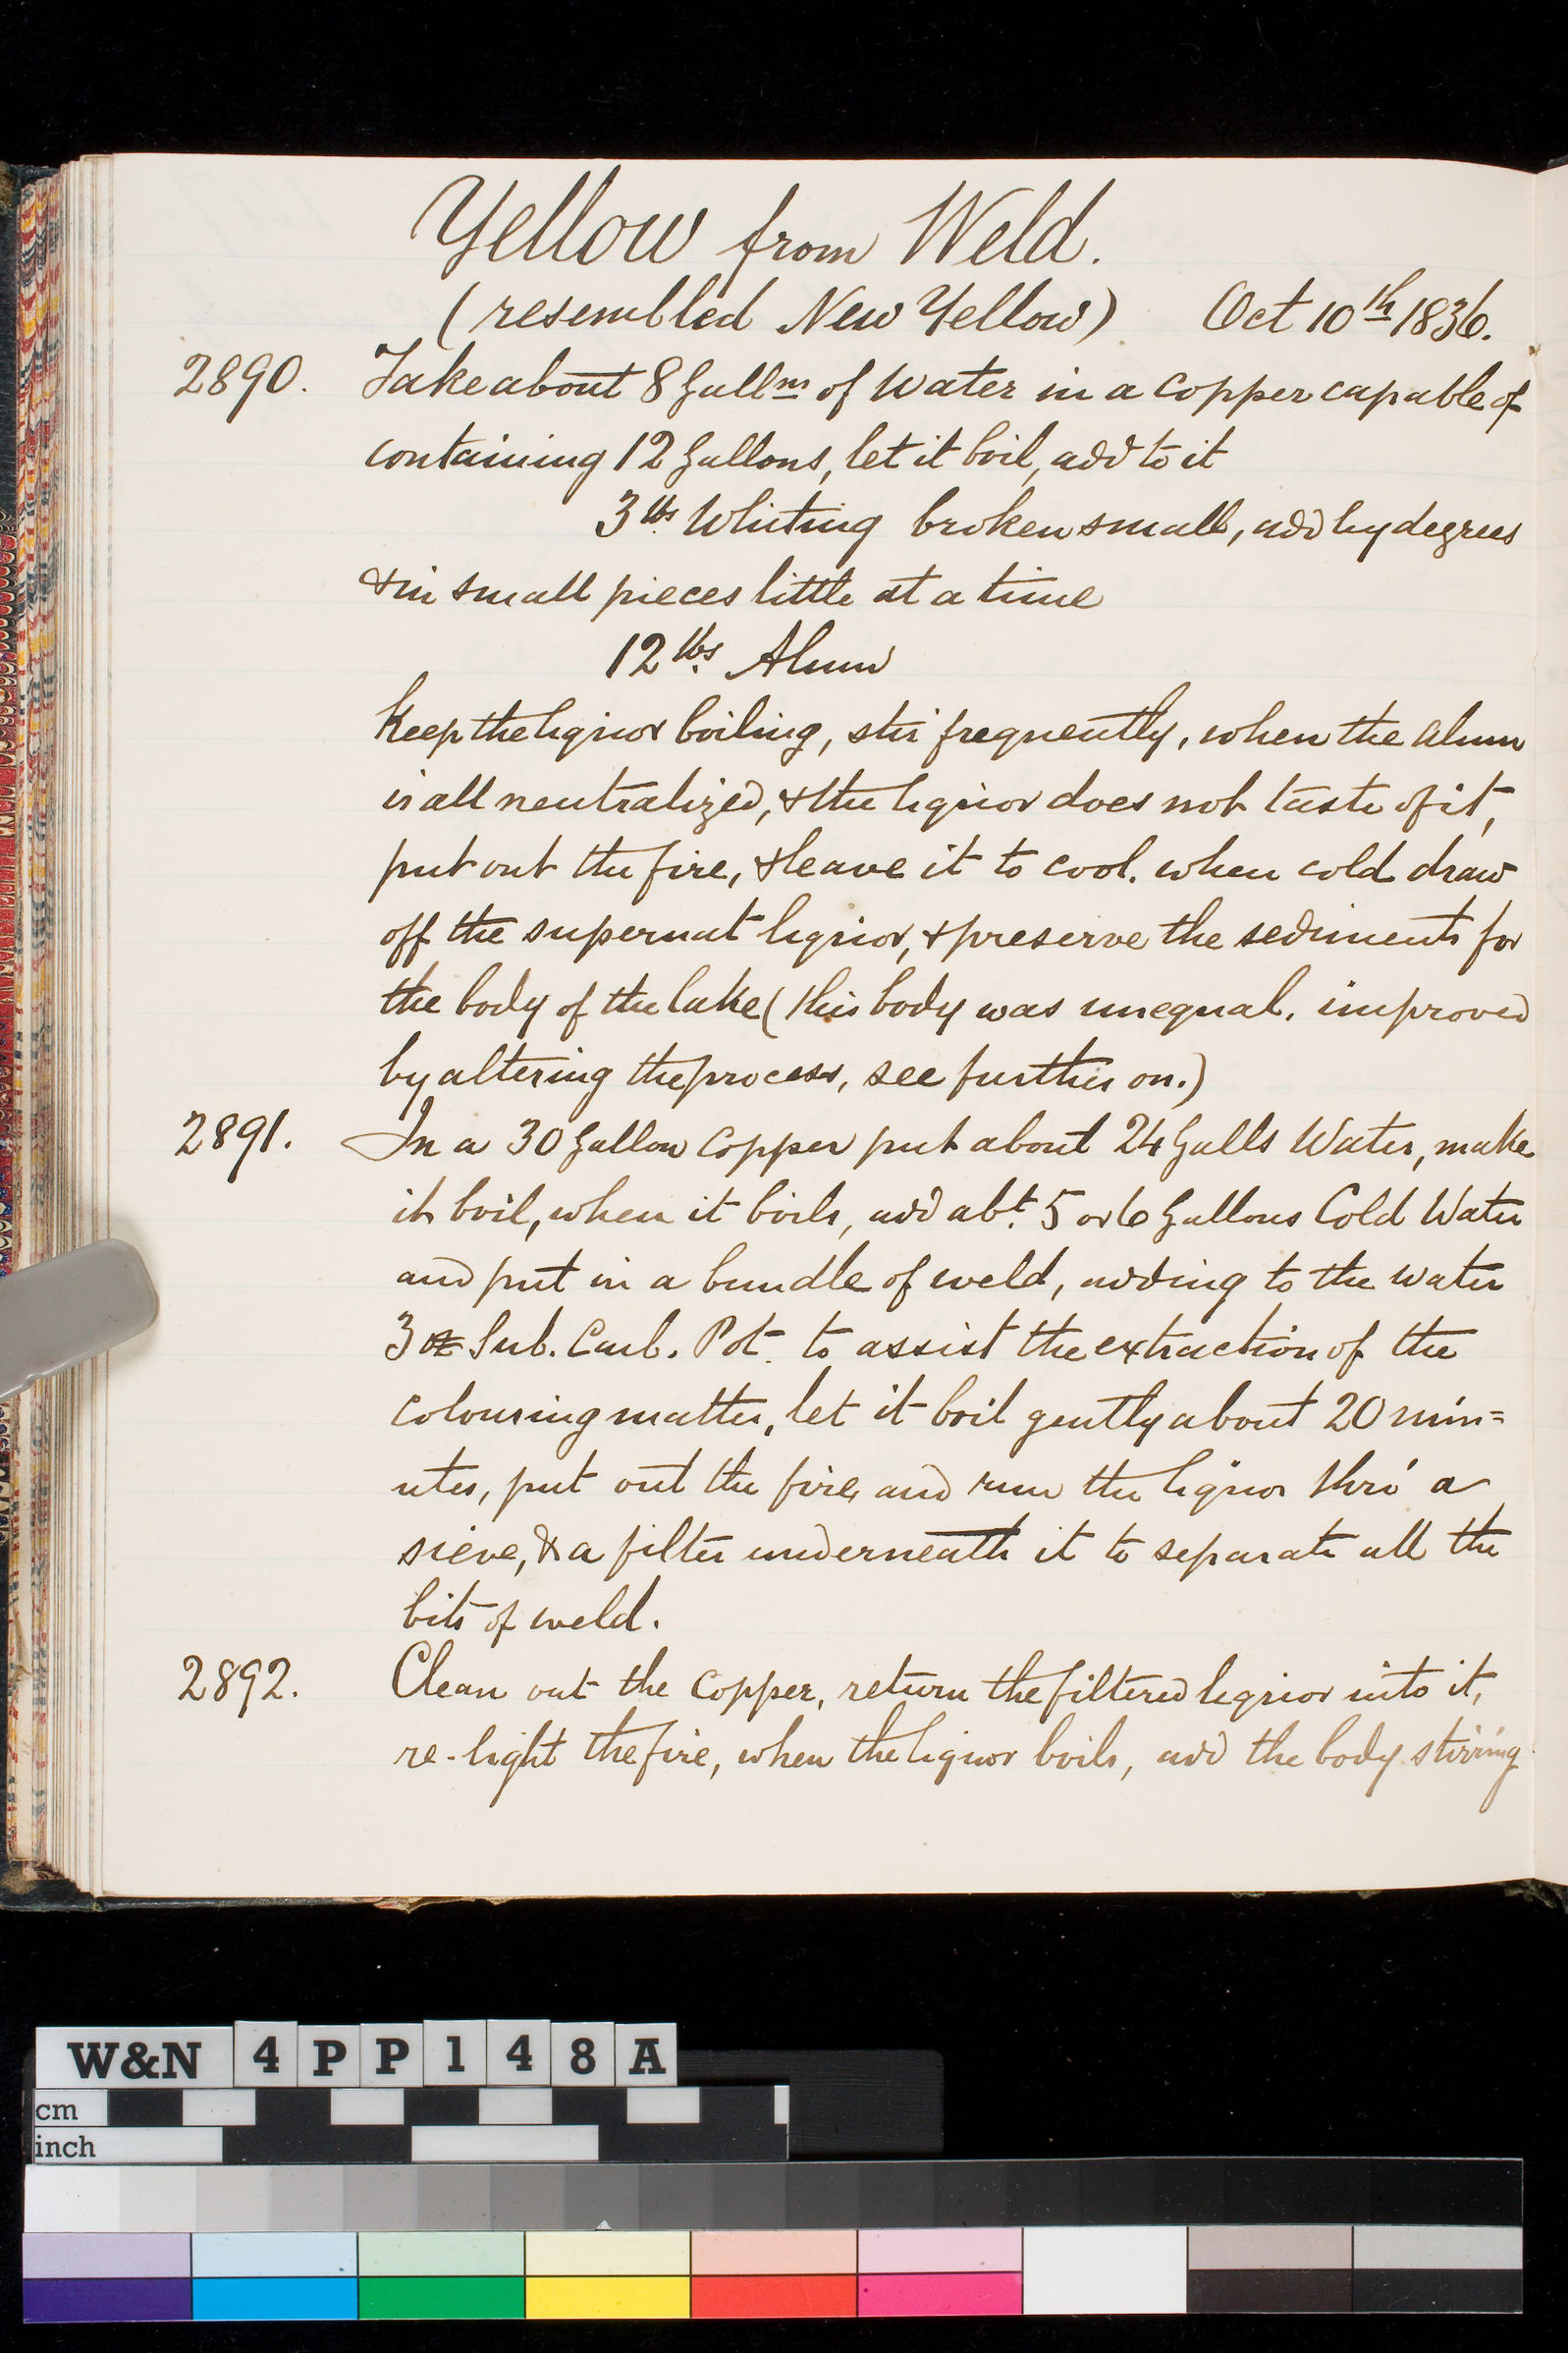 Yellow from Weld.
(resembled New Yellow) Oct 10th 1836.
2890. Take about 8 Gallns of Water in a copper capable of
containing 12 Gallons, let it boil, add to it
3 lbs Whiting broken small, add by degrees
& in small pieces little at a time
12 lbs. Alum
Keep the liquor boiling, stir frequently, when the alum
is all neutralized, & the liquor does not taste of it,
put out the fire, & leave it to cool. when cold draw
off the supernat liquor, & preserve the sediments for
the body of the lake (this body was unequal. improved
by altering the process, see further on.)
2891. In a 30 Gallon copper put about 24 Galls Water, make
it boil, when it boils, add abt. 5 or 6 Gallons Cold Water
and put in a bundle of weld, adding to the water
3 oz Sub. Carb. Pot. to assist the extraction of the
colouring matter, let it boil gently about 20 min=
utes, put out the fire, and run the liquor thro' a
sieve, & a filter underneath it to separate all the
bits of weld.
2892. Clean out the copper, return the filtered liquor into it,
re-light the fire, when the liquor boils, add the body stirring
W&N 4PP148A
cm
inch